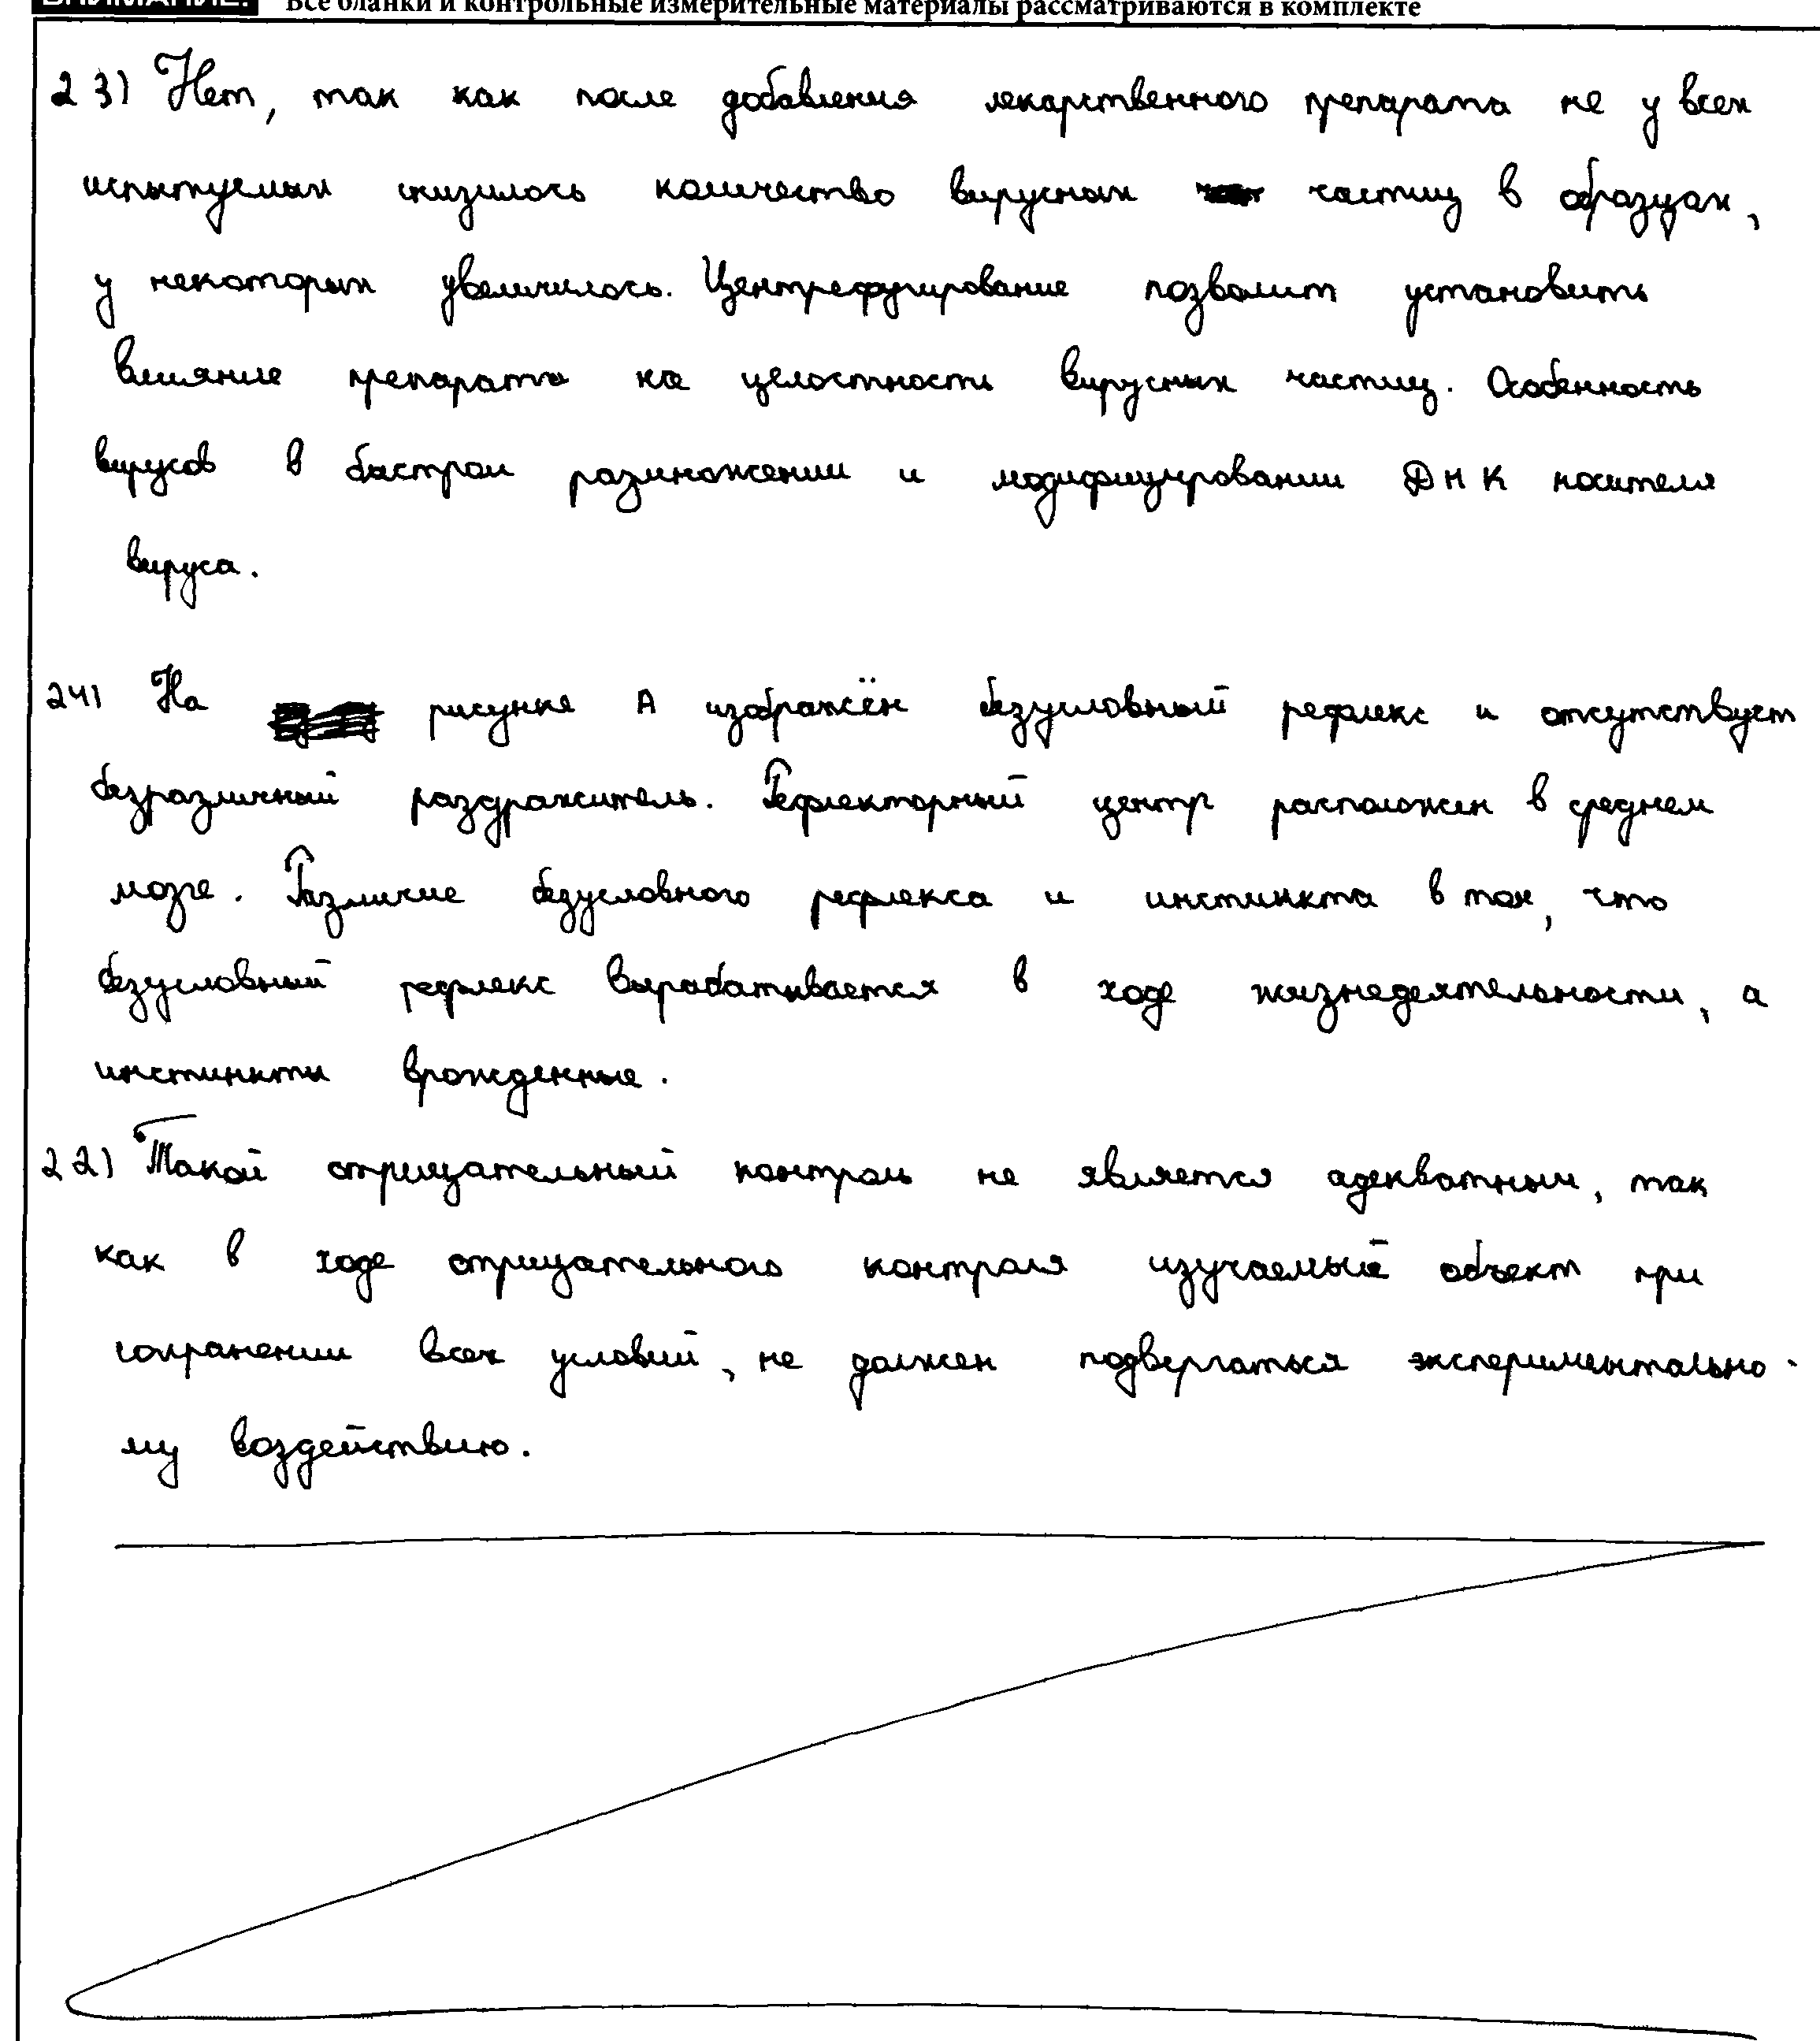 ВНИМАНИЕ! Все бланки и контрольные измерительные материалы рассматриваются в комплекте
23) Нет, так как после добавления лекарственного препарата не у всех
испытуемых снизилось количество вирусных частиц в образцах,
у некоторых увеличилось. Центрефугирование позволит установить
влияние препарата на целостность вирусных частиц. Особенность
вирусов в быстром размножении и модифицировании ДНК носителя
вируса.
24) На рисунке А изображён безусловный рефлекс и отсутствует
безразличный раздражитель. Рефлекторный центр расположен в среднем
мозге. Различие безусловного рефлекса и инстинкта в том, что
безусловный рефлекс вырабатывается в ходе жизнедеятельности, а
инстинкты врожденные.
22) Такой отрицательный контроль не является адекватным, так
как в ходе отрицательного контроля изучаемый объект при
сохранении всех условий, не должен подвергаться экспериментально-
му воздействию.